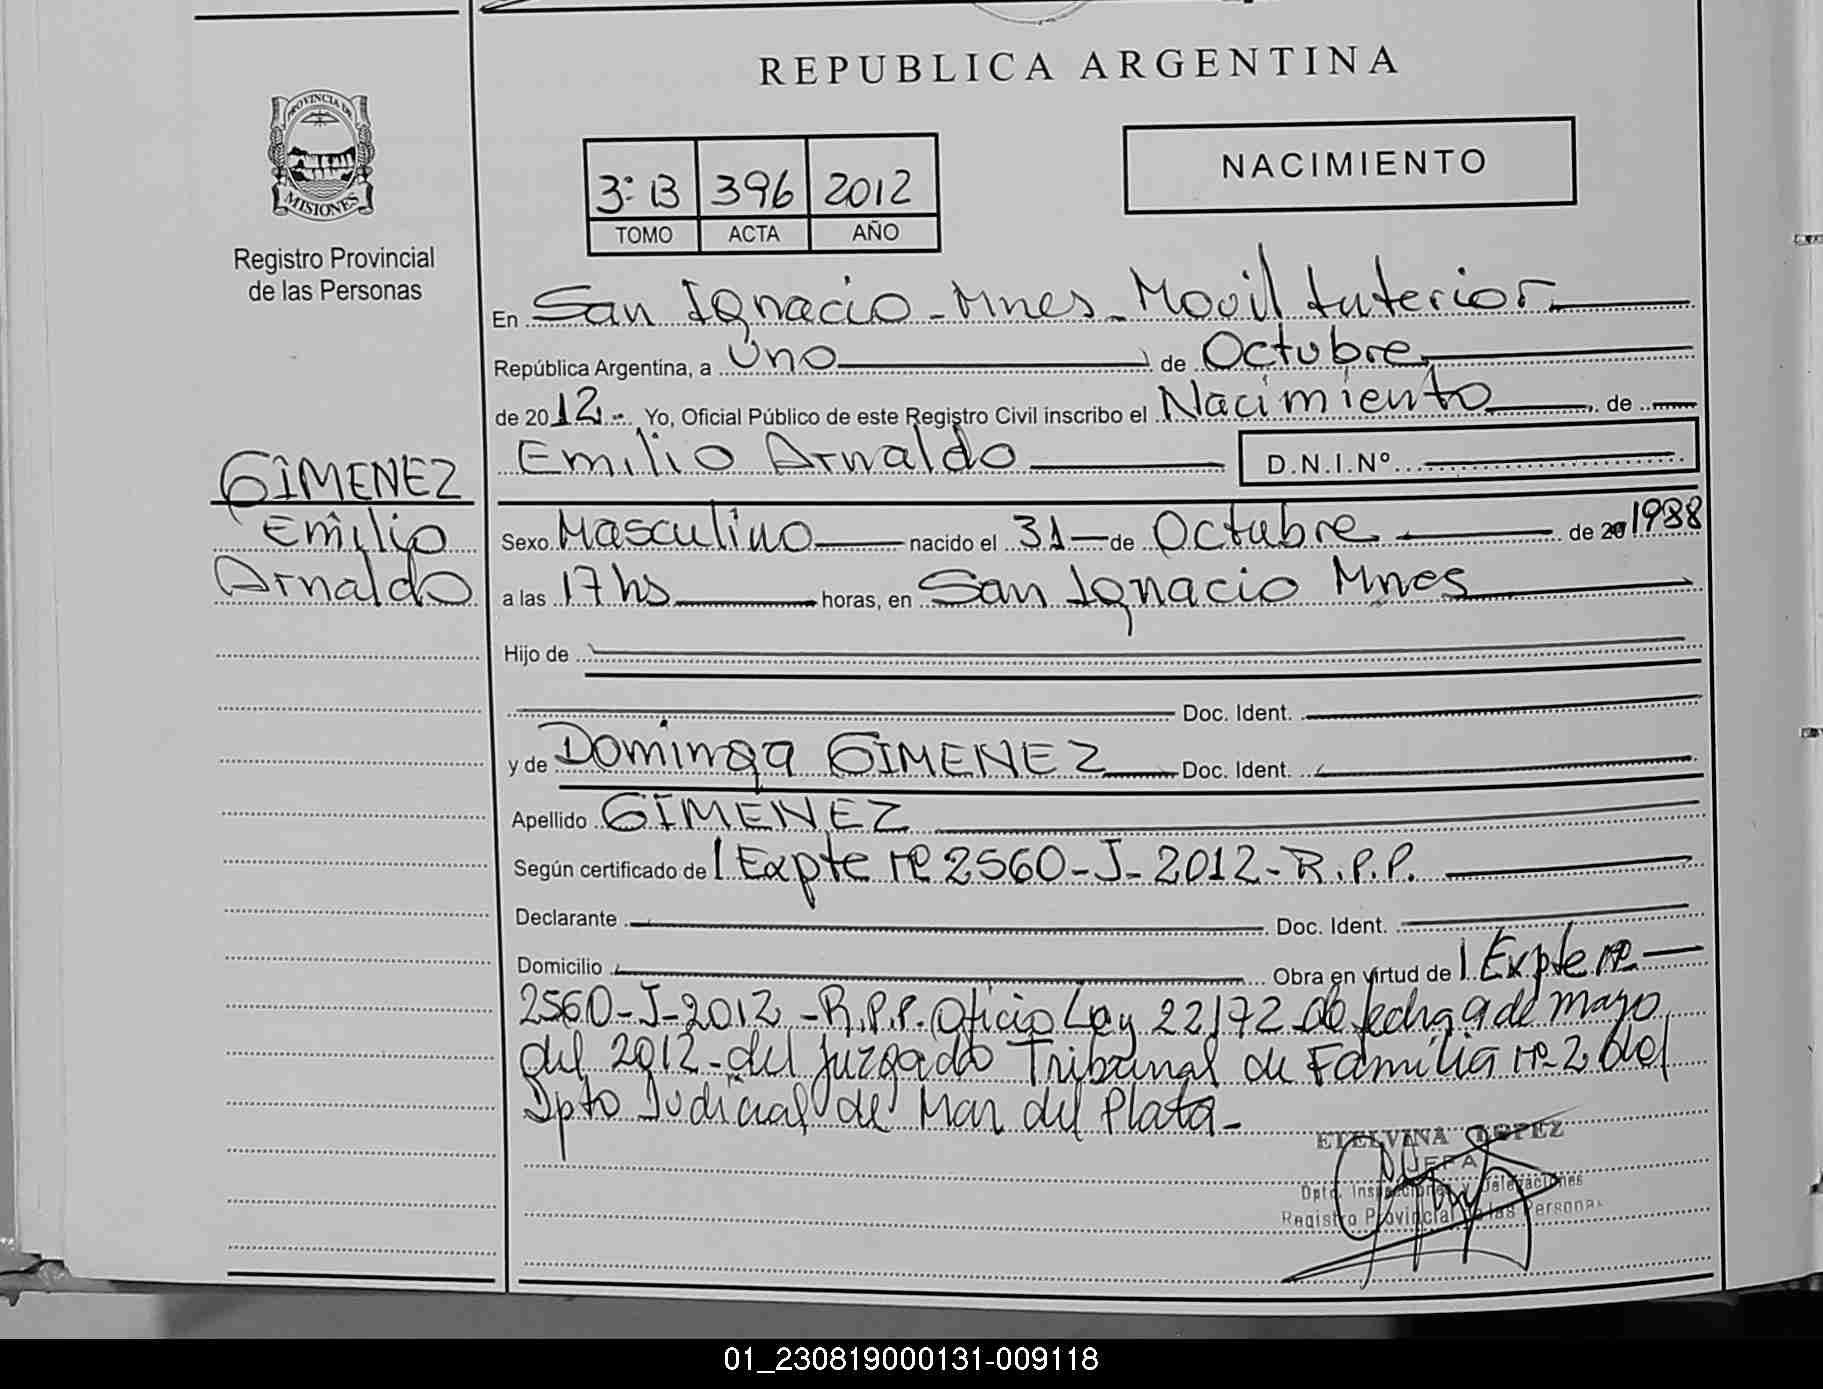 REPUBLICA ARGENTINA
PROVINCIA DE
MISIONES
Registro Provincial
de las Personas
3: B 396 2012
TOMO ACTA AÑO
NACIMIENTO
En San Ignacio - Mnes - Movil Interior
República Argentina, a Uno de Octubre
de 2012.- Yo, Oficial Público de este Registro Civil inscribo el Nacimiento de
Emilio Arnaldo D.N.I.Nº
GIMENEZ
Emilio
Arnaldo
Sexo Masculino nacido el 31 de Octubre de 20 1988
a las 17 hs horas, en San Ignacio Mnes
Hijo de
Doc. Ident.
y de Dominga GIMENEZ Doc. Ident.
Apellido GIMENEZ
Según certificado de Expte nº 2560-J-2012-R.P.P.
Declarante Doc. Ident.
Domicilio Obra en virtud de Expte nº
2560-J-2012-R.P.P. Oficio Ley 22172 de fecha 9 de mayo
del 2012- del Juzgado Tribunal de Familia nº 2 del
Dpto Judicial de Mar del Plata-
ETELVINA LOPEZ
JEFA
Dpto. Inspecciones y Delegaciones
Registro Provincial de las Personas
01_230819000131-009118